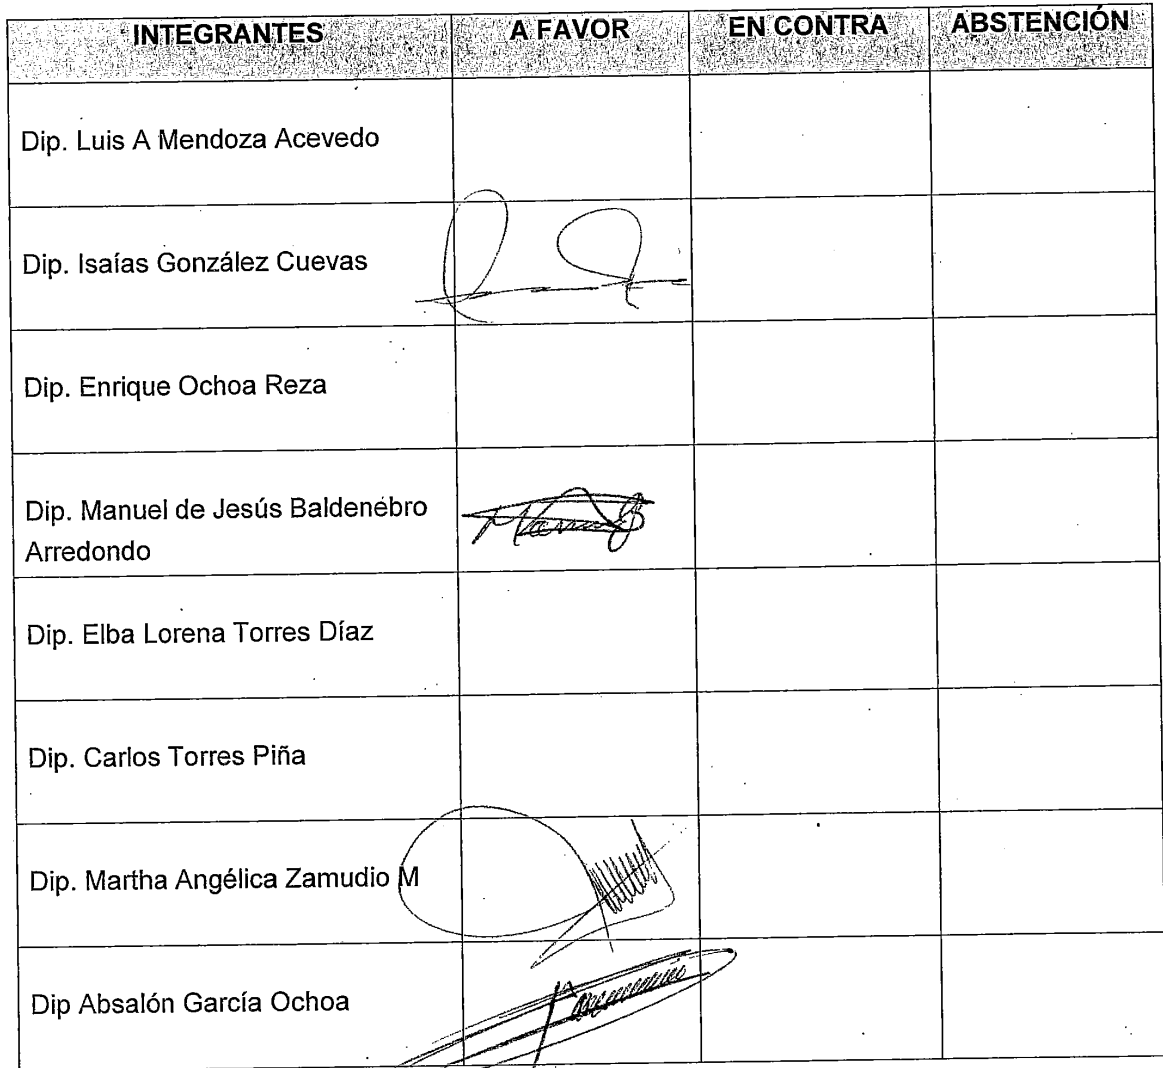 INTEGRANTES A FAVOR EN CONTRA ABSTENCIÓN
Dip. Luis A Mendoza Acevedo
Dip. Isaías González Cuevas
Dip. Enrique Ochoa Reza
Dip. Manuel de Jesús Baldenebro
Arredondo
Dip. Elba Lorena Torres Díaz
Dip. Carlos Torres Piña
Dip. Martha Angélica Zamudio M
Dip Absalón García Ochoa